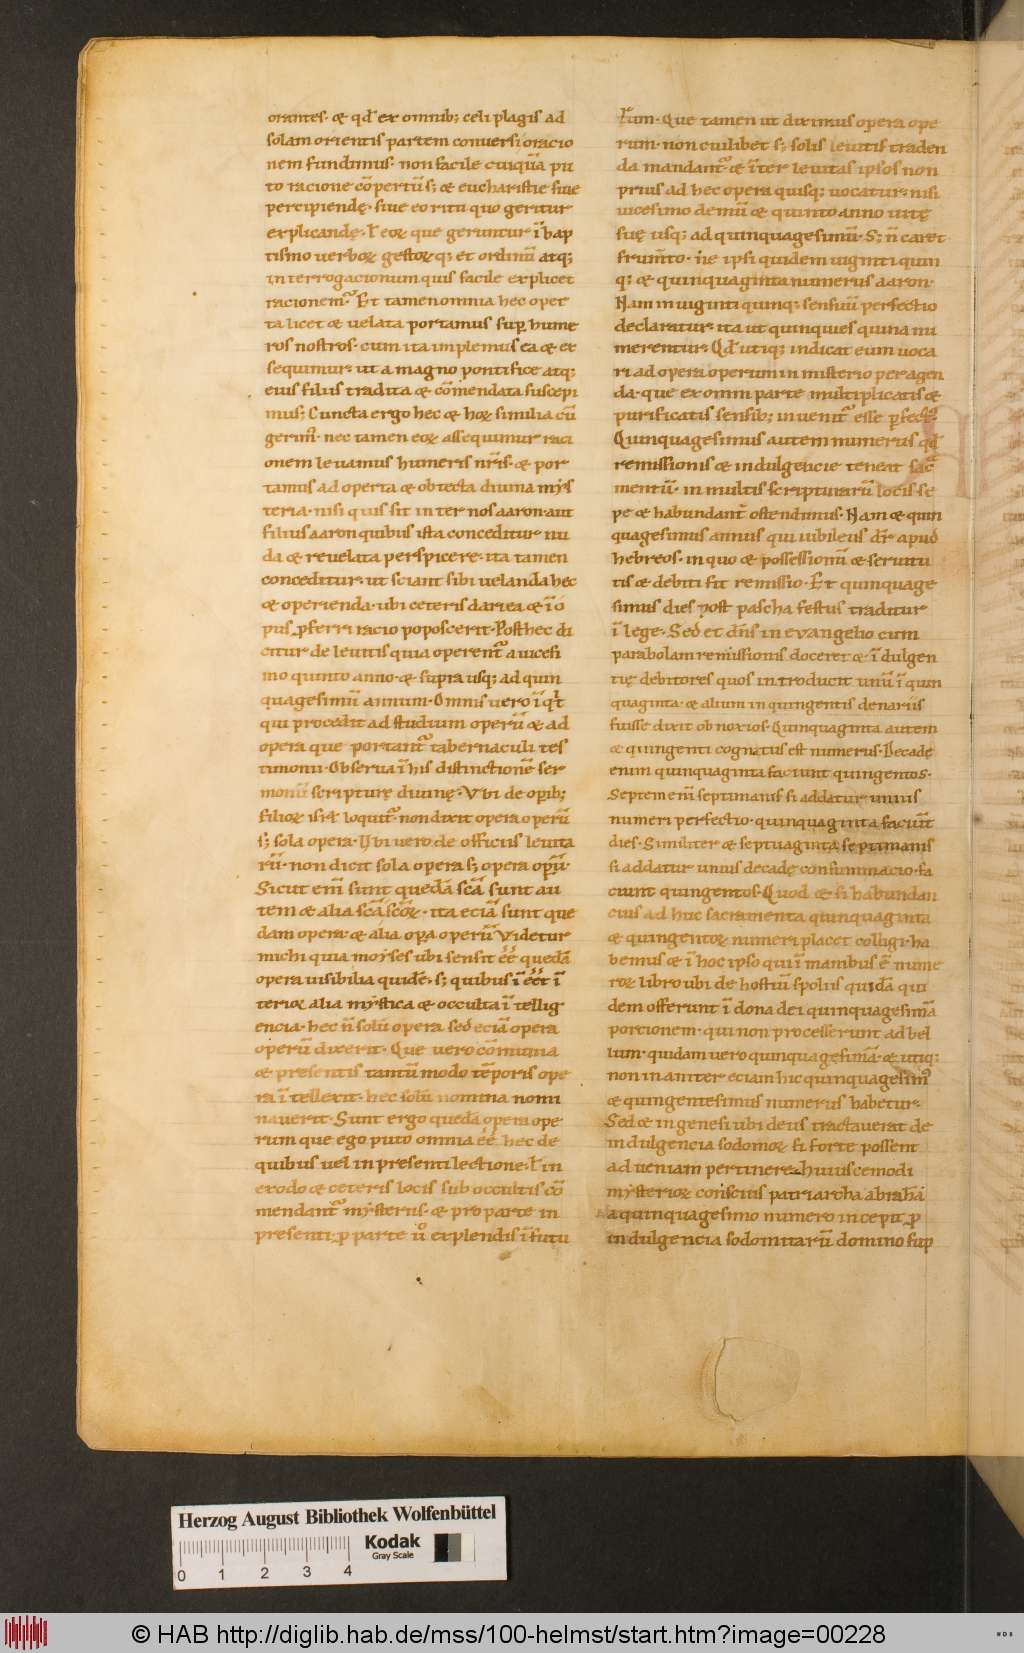 orantes. & qđ ex omnib; celi plagis ad
solam orientis partem conversi oracio
nem fundimus. non facile cuiquā pu
to racione cōpertū; & eucharistie sive
percipiendę. sive eo ritu quo geritur
explicandę. ł eoꝝ que geruntur ī bap
tismo verboꝝ gestoꝝq; et ordinū atq;
interrogacionum quis facile explicet
racionem. Et tamen omnia hec oper
ta licet & velata portamus suꝑ hume
ros nostros. cum ita implemus ea & ex
sequimur. ut a magno pontifice atq;
eius filiis tradita & cōmendata suscepi
mus; Cuncta ergo hec & hoꝝ similia cū
gerim᷒. nec tamen eoꝝ assequimur raci
onem levamus humeris nr̄is. & por
tamus ad operta & obtecta divina mys
teria. nisi quis sit inter nos aaron. aut
filius aaron quibus ista conceditur nu
da & revelata perspicere. ita tamen
conceditur. ut sciant sibi velanda hec
& operienda. ubi ceteris dari ea & ī o
pus ꝓferri racio poposcerit. Post hec di
citur de levitis quia operent᷒ a vicesi
mo quinto anno. & supra usq; ad quin
quagesimū annum. Omnis vero īqt
qui procedit ad studium operū & ad
opera que portant᷒ tabernaculi tes
timonii. Observa ī his distinctionē ser
monū scripturę divinę. Ubi de oꝑib;
filioꝝ isrł loquit᷒. non dixit opera operū
s; sola opera. Ubi vero de officiis levita
rū. non dicit sola opera s; opera oꝑū.
Sicut enī sunt quedā scā sunt au
tem & alia scā scōꝝ. ita eciā sunt que
dam opera. & alia oꝑa operū. Videtur
michi quia moyses ubi sensit ēē quedā
opera visibilia quidē. s; quibus ī ēēt ī
terioꝝ alia mystica & occulta ī tellig
encia. hec n̄ solū opera sed eciā opera
operū dixerit. Que vero cōmunia
& presentis tantū modo tēporis ope
ra ī tellexit. hec solū nomina nomi
naverit. Sunt ergo quedā opera ope
rum que ego puto omnia ēē. hec de
quibus vel in presenti lectione. ł in
exodo & ceteris locis sub occultis cō
mendant᷒ mysteriis. & pro parte in
presenti. ꝓ parte ū explendis ī futu
ł um. Que tamen ut diximus opera ope
rum. non cuilibet s; solis levitis traden
da mandant᷒. & īter levitas ipsos non
prius ad hec opera quisq; vocatur. nisi
vicesimo demū & quinto anno vitę
suę usq; ad quinquagesimū. S; n̄ caret
frum̄to. ne ipsi quidem viginti quin
q; & quinquaginta numerus aaron.
Nam in viginti quinq; sensuū perfectio
declaratur. ita ut quinquies quina nu
merentur. Qđ utiq; indicat eum voca
ri ad opera operum in misterio peragen
da. que ex omni parte multiplicatis &
purificatis sensib; invenit᷒ esse ꝑfect᷒.
Quinquagesimus autem numerus qđ
remissionis & indulgencie teneat sac̄
mentū. in multis scripturarū locis se
pe & habundant̄ ostendimus. Nam & quin
quagesimus annus qui iubileus dr̄ apud
hebreos. in quo & possessionū & servitu
tis & debiti fit remissio. Et quinquage
simus dies post pascha festus traditur
ī lege. Sed et dn̄s in evangelio cum
parabolam remissionis doceret & ī dulgen
tię debitores quos introducit unū ī quin
quaginta. & alium in quingentis denariis
fuisse dixit obnoxios. Quinquaginta autem
& quingenti cognatus est numerus. Decadę
enim quinquaginta faciunt quingentos.
Septem enī septimanis si addatur unius
numeri perfectio. quinquaginta faciūt
dies. Similiter & septuaginta septimanis
si addatur unius decadę consummacio. fa
ciunt quingentos. Quod & si habundan
cius ad huc sacramenta quinquaginta
& quingentoꝝ numeri placet colligi. ha
bemus & ī hoc ipso qui ī manibus ē nume
roꝝ libro ubi de hostiū spoliis quidā qui
dem offerunt ī dona dei quinquagesimā
porcionem. qui non processerunt ad bel
lum. quidam vero quinquagesimā. & utiq;
non inaniter eciam hic quinquagesim᷒
& quingentesimus numerus habetur.
Sed & in genesi ubi deus tractaverat de
indulgencia sodomoꝝ si forte possent
ad veniam pertinere. huiuscemodi
mysterioꝝ conscius patriarcha abrahā
a quinquagesimo numero incepit ꝓ
indulgencia sodomitarū domino sup
Herzog August Bibliothek Wolfenbüttel
Kodak
Gray Scale
0 1 2 3 4
© HAB http://diglib.hab.de/mss/100-helmst/start.htm?image=00228